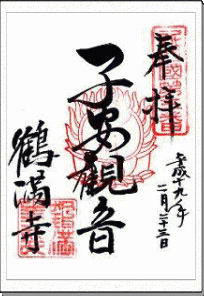 奉拝
平成十九年
二月二十三日
子安観音
鶴満寺